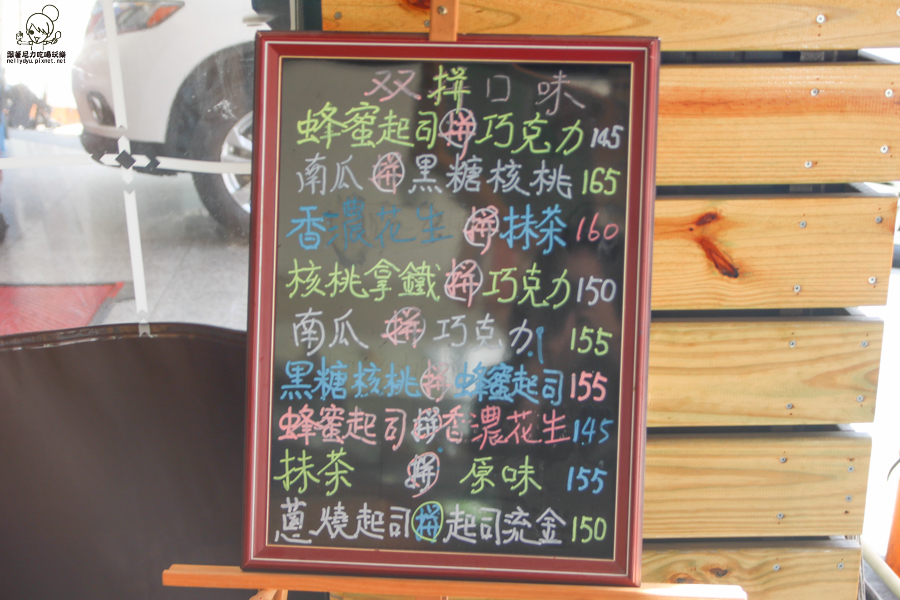 跟著尼力吃喝玩樂
nellydyu.pixnet.net
双拼口味
蜂蜜起司拼巧克力 145
南瓜拼黑糖核桃 165
香濃花生拼抹茶 160
核桃拿鐵拼巧克力 150
南瓜拼巧克力 155
黑糖核桃拼蜂蜜起司 155
蜂蜜起司拼香濃花生 145
抹茶拼原味 155
蔥燒起司拼起司流金 150